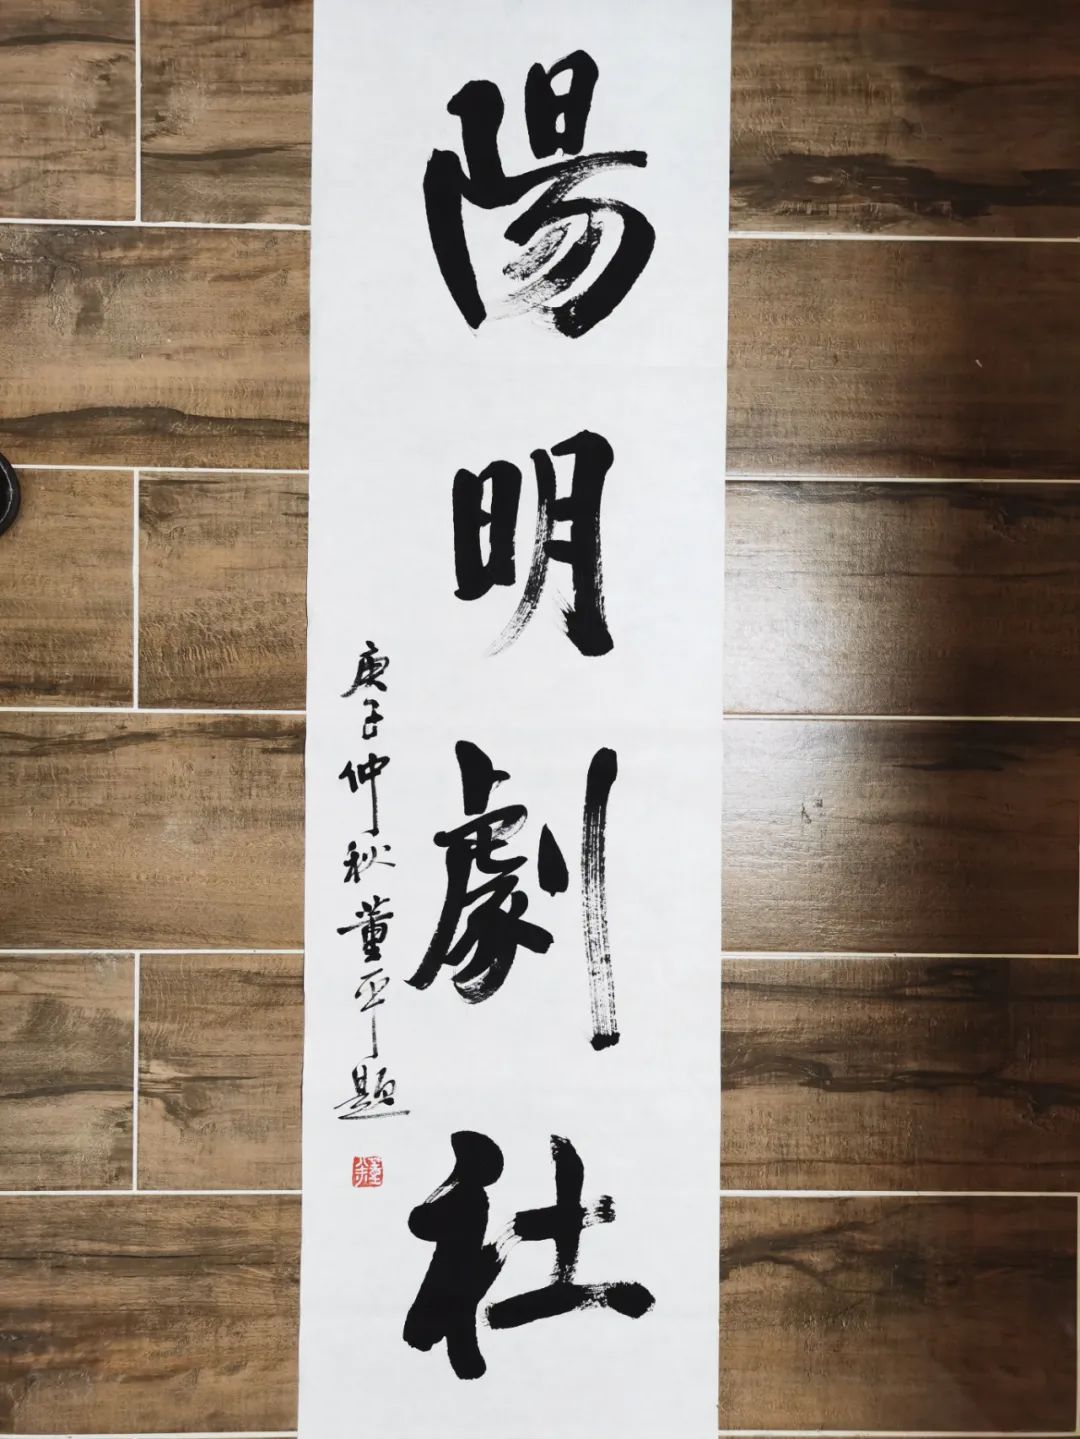 陽明劇社
庚子仲秋董平題